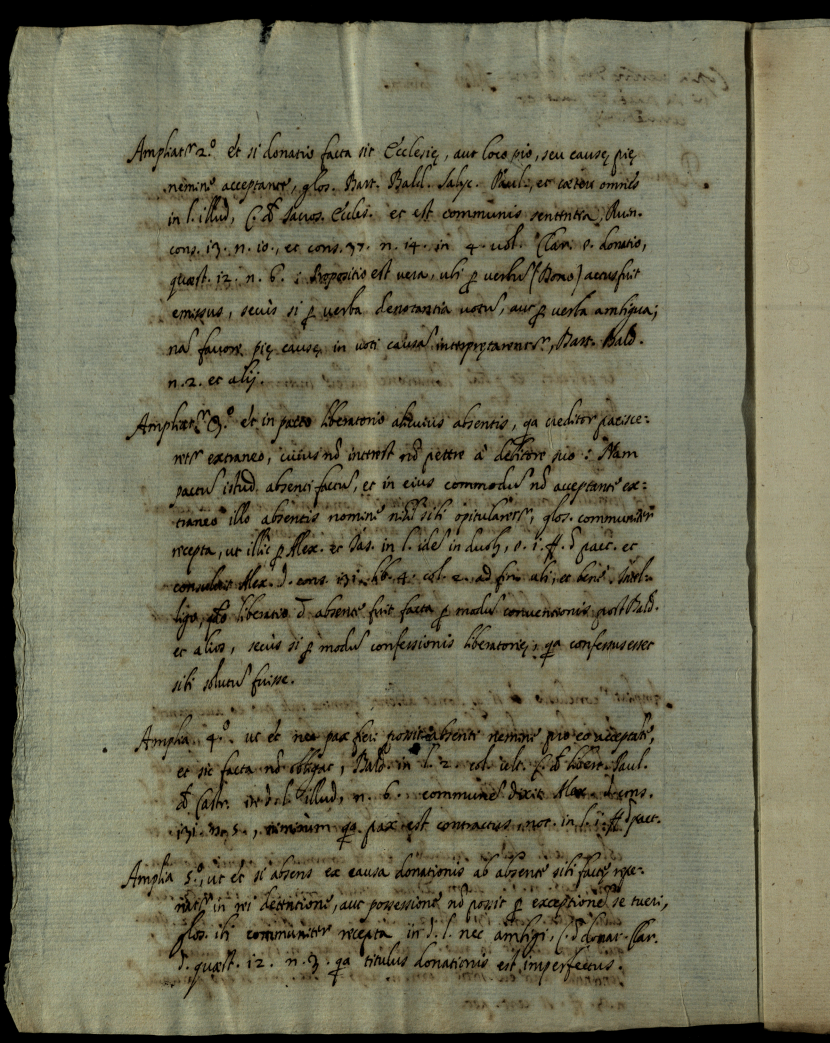 Ampliatr 2.º et si donatio facta sit Ecclesię, aut loco pio, seu causę pię
nemine acceptante, glos. Bart. Bald. Salyc. Paul., et coeteri omnes
in l. illud, C. de Sacros. Eccles. et est communis sententia, Ruin.
cons. 13. n. 10., et cons. 37. n. 14. in 4. vol. Clar. s. donatio,
quæst. 12. n. 6. : Propositio est vera, ubi p verbũ (Dono) actus fuit
emissus, secùs si p verba denotantia votũ, aut p verba ambigua;
nã favore pię causę in voti causã interpretarentr, Bart. Bald.
n. 2. et alij.
Ampliatr 3.º et in pacto liberatorio alicuius absentis, qa creditor pacisce-
retr extraneo, cuius nõ interest nõ petere à debitore suo : Nam
pactũ istud absenti factũ, et in eius commodũ nõ acceptante ex-
traneo illo absentis nomine nihil sibi opitularetr, glos. communiter
recepta, ut illic p Alex. et Ias. in l. idẽ in duob, s. 1. ff. d pact. et
consuluit Alex. d. cons. 131. lib. 4. col. 2. ad fin. ubi, et benè Intel-
ligo, liberatio d absente fuit facta p modũ conventionis post Bald.
et alios, secùs si p modũ confessionis liberatorię, qa confessus esset
sibi solutũ fuisse.
Amplia 4.º ut et nec pax fieri possit absenti nemine pro eo acceptãte,
et sic facta nõ obligat, Bald. in l. 2. col. ult. C. de libert. Paul.
de Castr. in d. l. illud, n. 6. communẽ dixit Alex. d. cons.
131. n. 5., nimirum qa pax est contractus, not. in l. 1. ff. d pact.
Amplia 5.º, ut et si absens ex causa donationis ab absente sibi factę repe-
riatr in rei detentione, aut possessione nõ possit p exceptionẽ se tueri,
glos. ibi communiter recepta in d. l. nec ambigi, C. d donat. Clar.
d. quæst. 12. n. 3. qa titulus donationis est imperfectus.